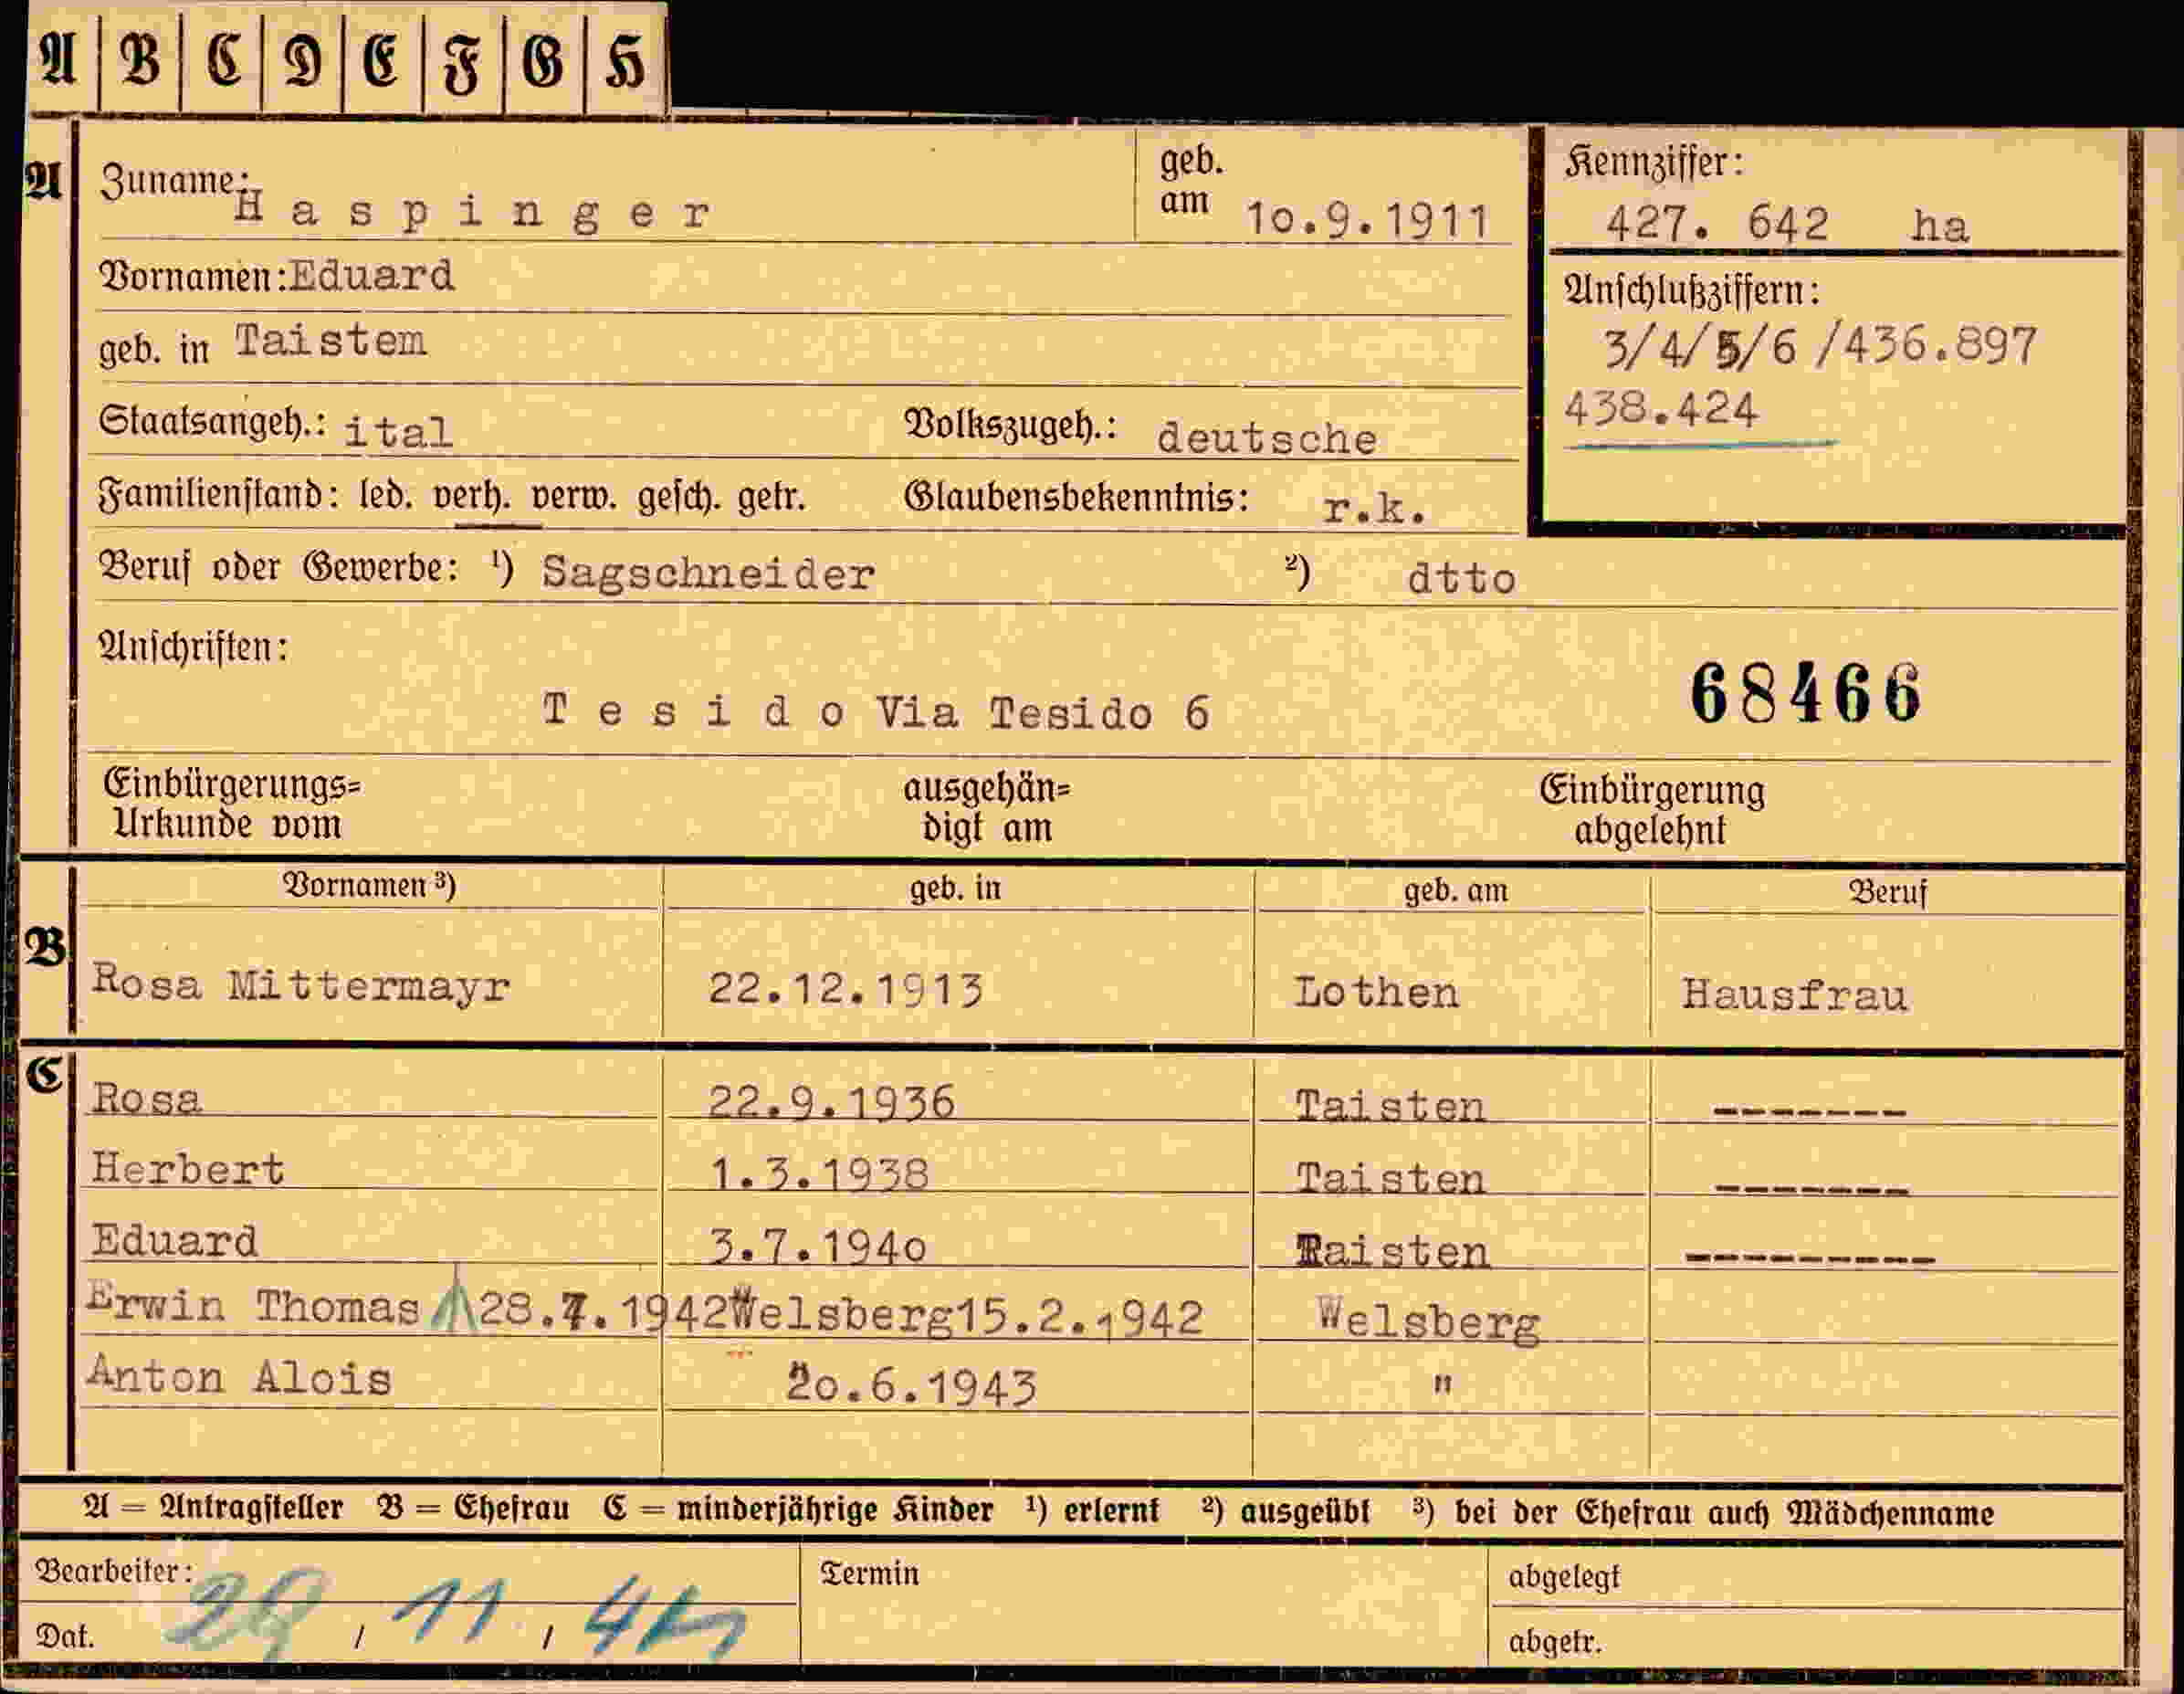 A B C D E F G H
A Zuname: Haspinger geb. am 10.9.1911
Kennziffer: 427. 642 ha
Vornamen: Eduard
geb. in Taistem
Anschlußziffern:
3/4/5/6 /436.897
438.424
Staatsangeh.: ital Volkszugeh.: deutsche
Familienstand: led. verh. verw. gesch. getr. Glaubensbekenntnis: r.k.
Beruf oder Gewerbe: ¹) Sagschneider ²) dtto
Anschriften:
Tesido Via Tesido 6
68466
Einbürgerungs= Urkunde vom ausgehän= digt am Einbürgerung abgelehnt
Vornamen ³) geb. in geb. am Beruf
B Rosa Mittermayr 22.12.1913 Lothen Hausfrau
C Rosa 22.9.1936 Taisten -------
Herbert 1.3.1938 Taisten -------
Eduard 3.7.1940 Taisten ---------
Erwin Thomas 28.7.1942 Welsberg 15.2.1942 Welsberg
Anton Alois 20.6.1943 "
A = Antragsteller B = Ehefrau C = minderjährige Kinder ¹) erlernt ²) ausgeübt ³) bei der Ehefrau auch Mädchenname
Bearbeiter: Termin abgelegt
Dat. / 11 / abgetr.